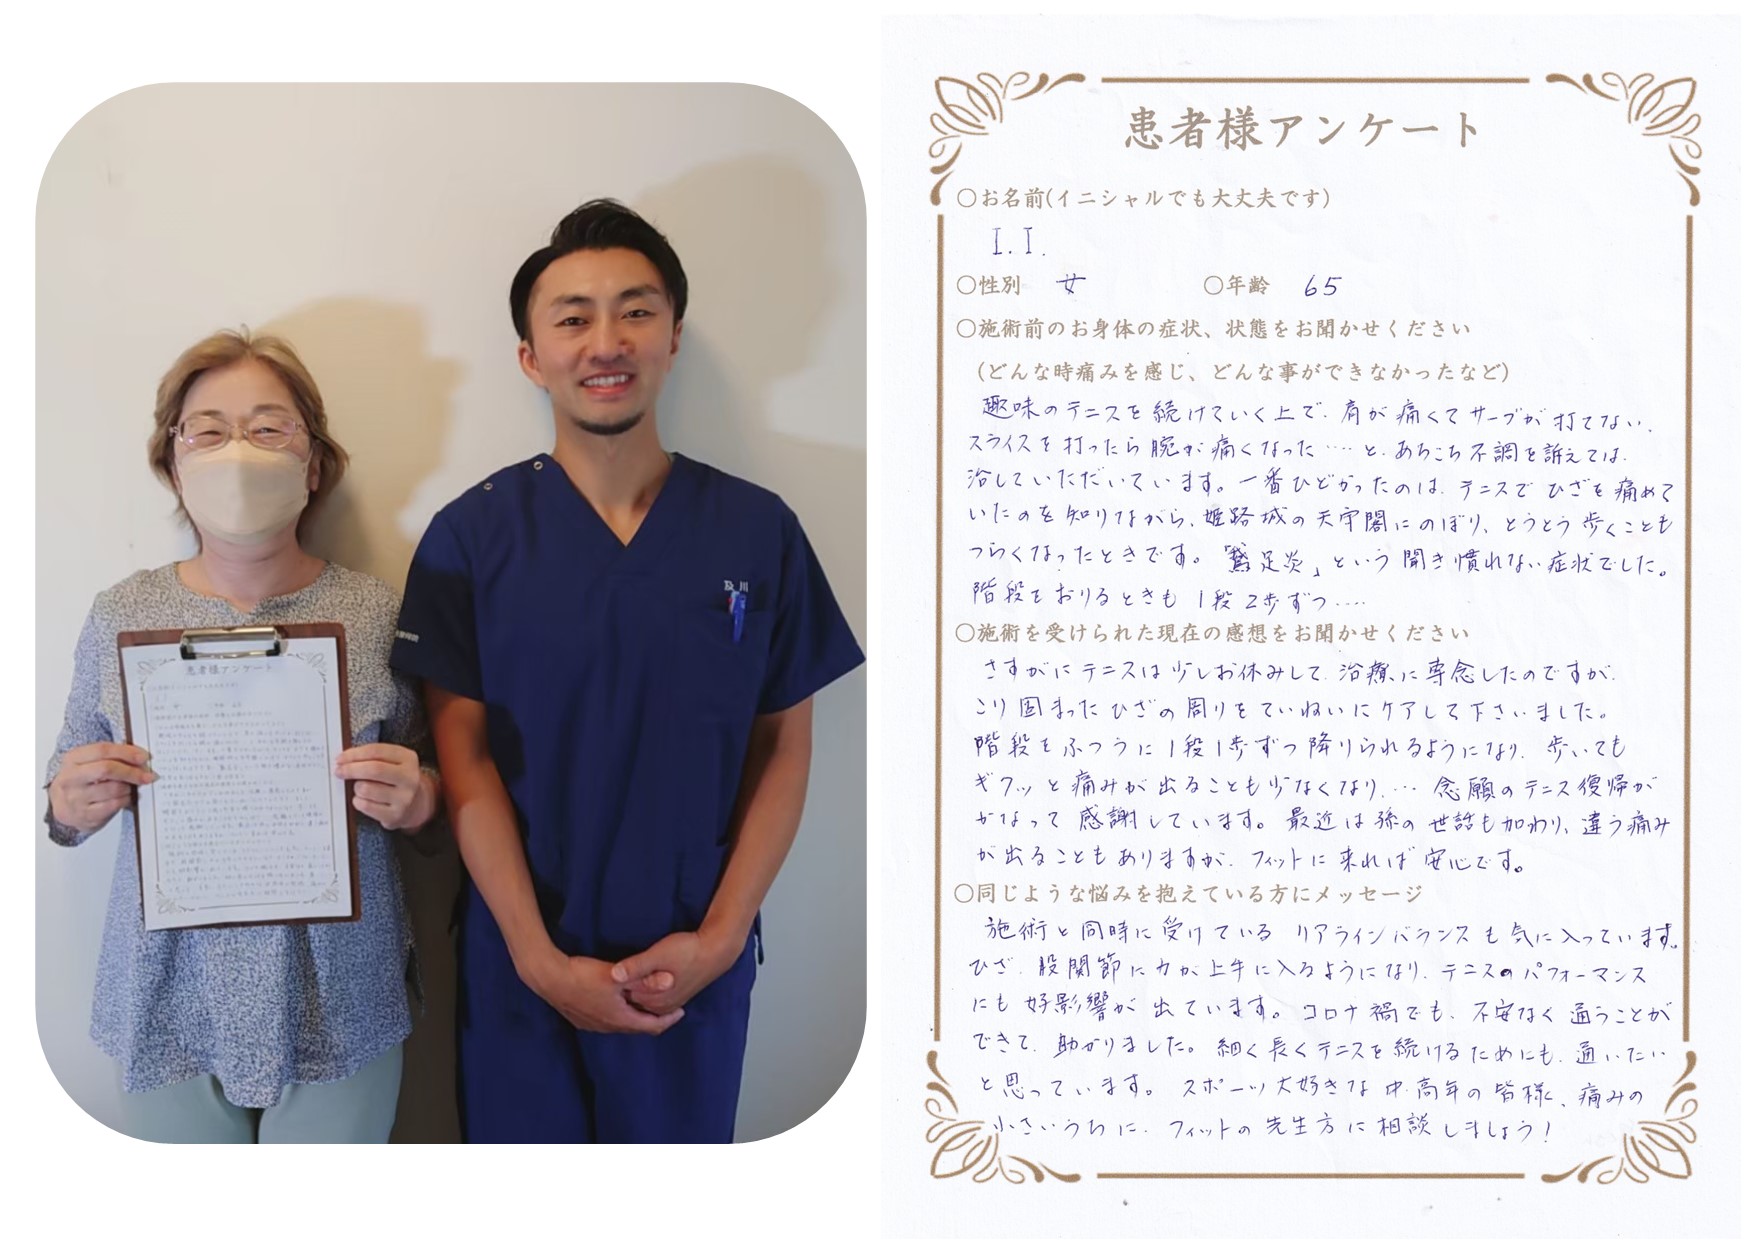 及川
患者様アンケート
患者様アンケート
○お名前(イニシャルでも大丈夫です)
I.I.
○性別 女 ○年齢 65
○施術前のお身体の症状、状態をお聞かせください
(どんな時痛みを感じ、どんな事ができなかったなど)
趣味のテニスを続けていく上で、肩が痛くてサーブが打てない、
スライスを打ったら腕が痛くなった‥‥と、あちこち不調を訴えては、
治していただいています。一番ひどかったのは、テニスでひざを痛めて
いたのを知りながら、姫路城の天守閣にのぼり、とうとう歩くことも
つらくなったときです。「鵞足炎」という聞き慣れない症状でした。
階段をおりるときも1段2歩ずつ‥‥
○施術を受けられた現在の感想をお聞かせください
さすがにテニスは少しお休みして、治療に専念したのですが、
こり固まったひざの周りをていねいにケアして下さいました。
階段をふつうに1段1歩ずつ降りられるようになり、歩いても
ギクッと痛みが出ることも少なくなり、‥‥念願のテニス復帰が
かなって感謝しています。最近は孫の世話も加わり、違う痛み
が出ることもありますが、フィットに来れば安心です。
○同じような悩みを抱えている方にメッセージ
施術と同時に受けているリアラインバランスも気に入っています。
ひざ、股関節に力が上手に入るようになり、テニスのパフォーマンス
にも好影響が出ています。コロナ禍でも、不安なく通うことが
できて、助かりました。細く長くテニスを続けるためにも、通いたい
と思っています。スポーツ大好きな中・高年の皆様、痛みの
小さいうちに、フィットの先生方に相談しましょう!